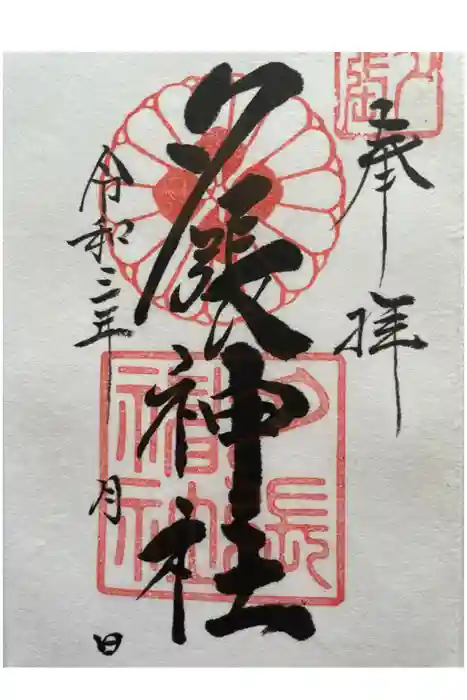 奉拝
夕張神社
令和三年 月 日
夕張
神社